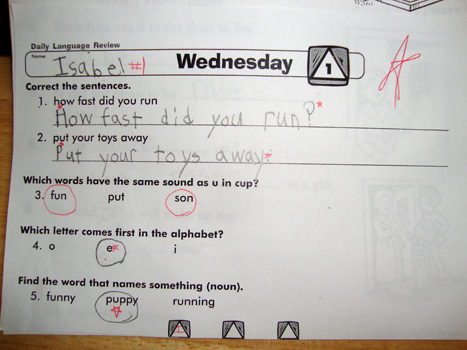 Daily Language Review
Name: Isabel #1
Wednesday
1
Correct the sentences.
1. how fast did you run
How fast did you run?*
2. put your toys away
Put your toys away.
Which words have the same sound as u in cup?
3. fun put son
Which letter comes first in the alphabet?
4. o e i
Find the word that names something (noun).
5. funny puppy running